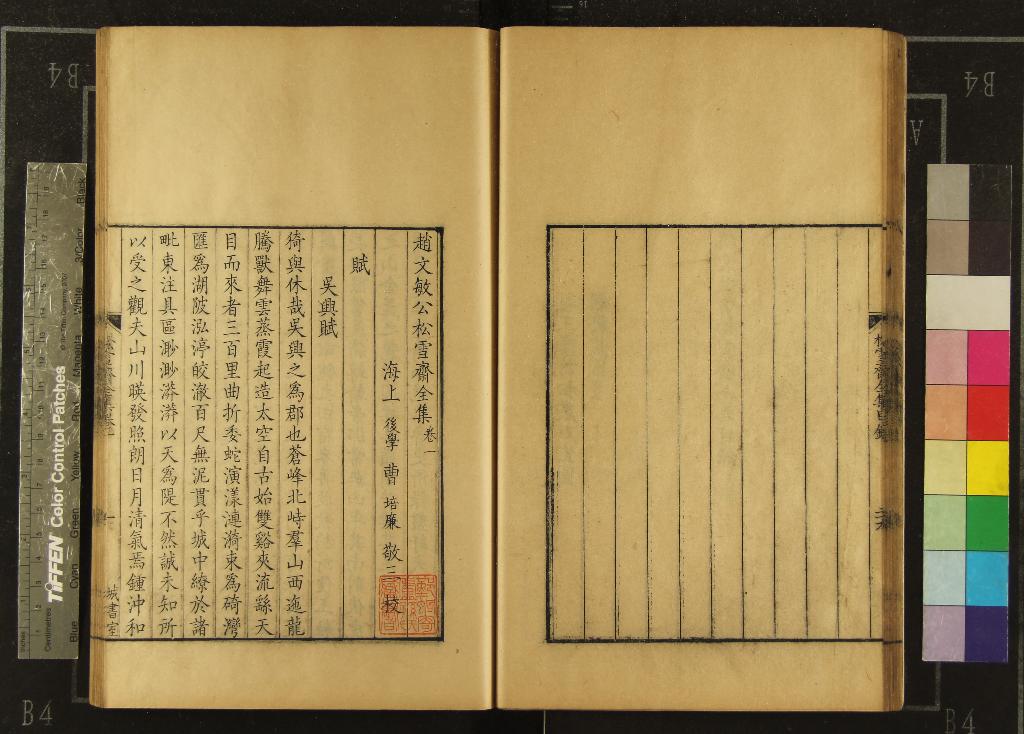 趙文敏公松雪齋全集卷一
海上 後學 曹 培廉 敬三 校
賦
吳興賦
猗與休哉吳興之為郡也蒼峰北峙羣山西迤龍
騰獸舞雲蒸霞起造太空自古始雙谿夾流繇天
目而來者三百里曲折委蛇演漾漣漪束為碕灣
匯為湖陂泓渟皎澈百尺無泥貫乎城中繚於諸
毗東注具區渺渺漭漭以天為隄不然誠未知所
以受之觀夫山川暎發照朗日月清氣焉鍾沖和
一
城書室
松雪齋全集目錄
TIFFEN Color Control Patches
Blue
Cyan
Green
Yellow
Red
Magenta
White
3/Color
Black
Inches
Centimetres
B4
B4
B4
B4
A